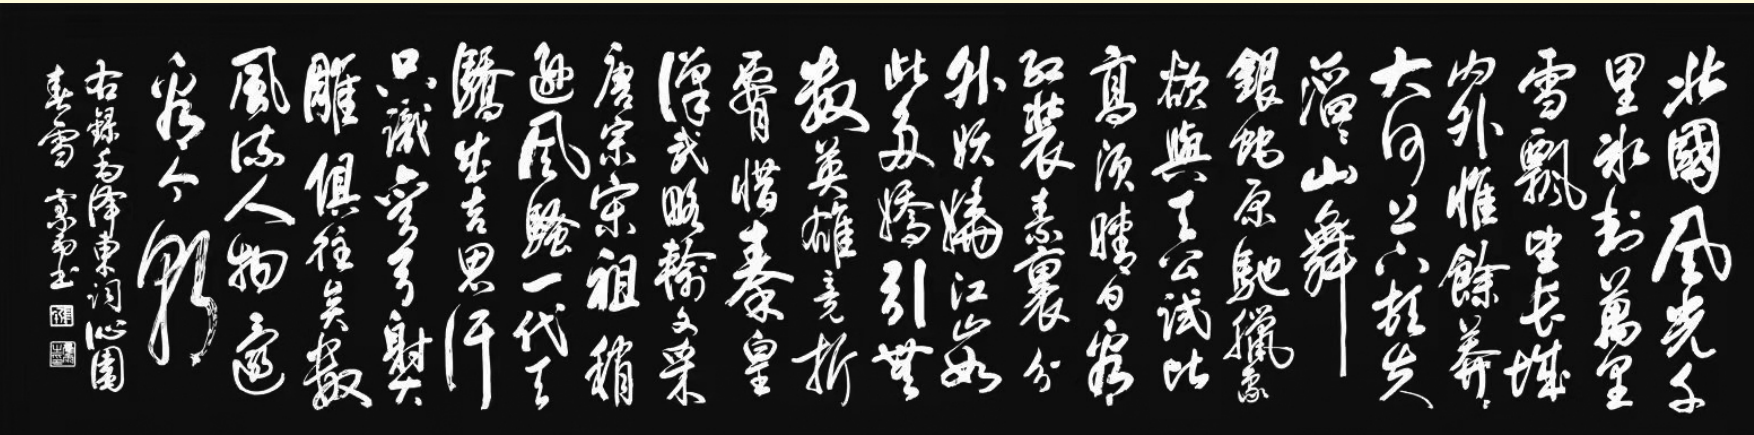 北國風光千
里冰封萬里
雪飄望長城
內外惟餘莽〻
大河上下頓失
滔〻山舞
銀蛇原馳臘象
欲與天公試比
高須晴日看
紅裝素裹分
外妖嬈江山如
此多嬌引無
數英雄競折
腰惜秦皇
漢武略輸文采
唐宗宋祖稍
遜風騷一代天
驕成吉思汗
只識彎弓射大
雕俱往矣數
風流人物還
看今朝
右錄毛澤東詞沁園
春雪